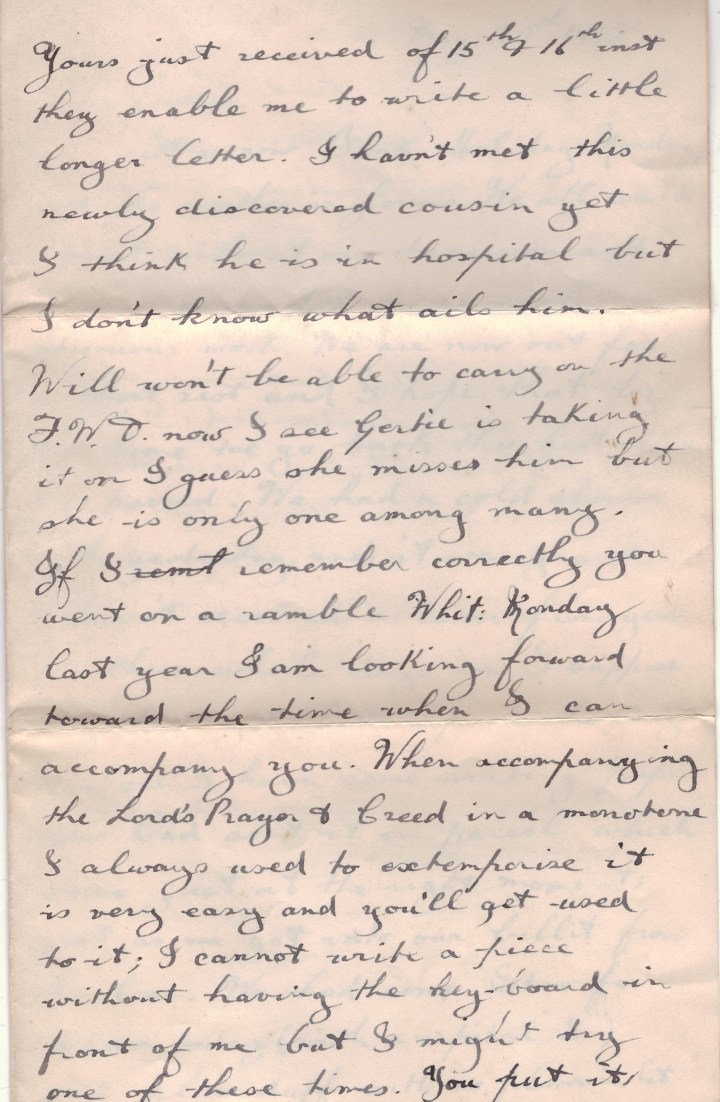 Yours just received of 15th & 16th inst
they enable me to write a little
longer letter. I havn't met this
newly discovered cousin yet
I think he is in hospital but
I don't know what ails him.
Will won't be able to carry on the
F.W.D. now I see Gertie is taking
it on I guess she misses him but
she is only one among many.
If I remt remember correctly you
went on a ramble Whit: Monday
last year I am looking forward
toward the time when I can
accompany you. When accompanying
the Lord's Prayer & Creed in a monotone
I always used to extemporise it
is very easy and you'll get used
to it; I cannot write a piece
without having the key-board in
front of me but I might try
one of these times. You put it,